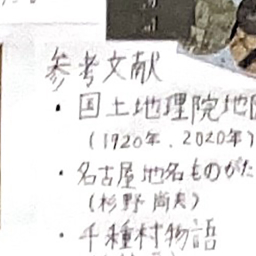 参考文献
・国土地理院地
(1920年、2020年)
・名古屋地名ものがた
(杉野尚夫)
・千種村物語